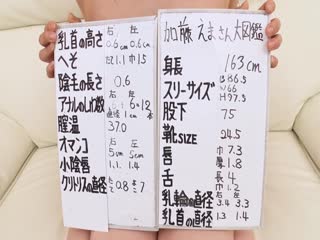 乳首の高さ 右0.6cm 左0.6cm
へそ 1.1 巾15
陰毛の長さ 0.6
アナルのしわ数 右6 左6=12本
膣温 37.0
オマ〇コ 右5cm 左5cm
小陰唇 1.1 1.4
クリトリスの直径 0.8 7
加藤えまさん大図鑑
身長 163cm
スリーサイズ B86.5 W66 H97.5
股下 75
靴SIZE 24.5
唇 巾7.3 厚1.8
舌 長4 巾1.2
乳輪の直径 3.4 3.3
乳首の直径 1.3 1.4